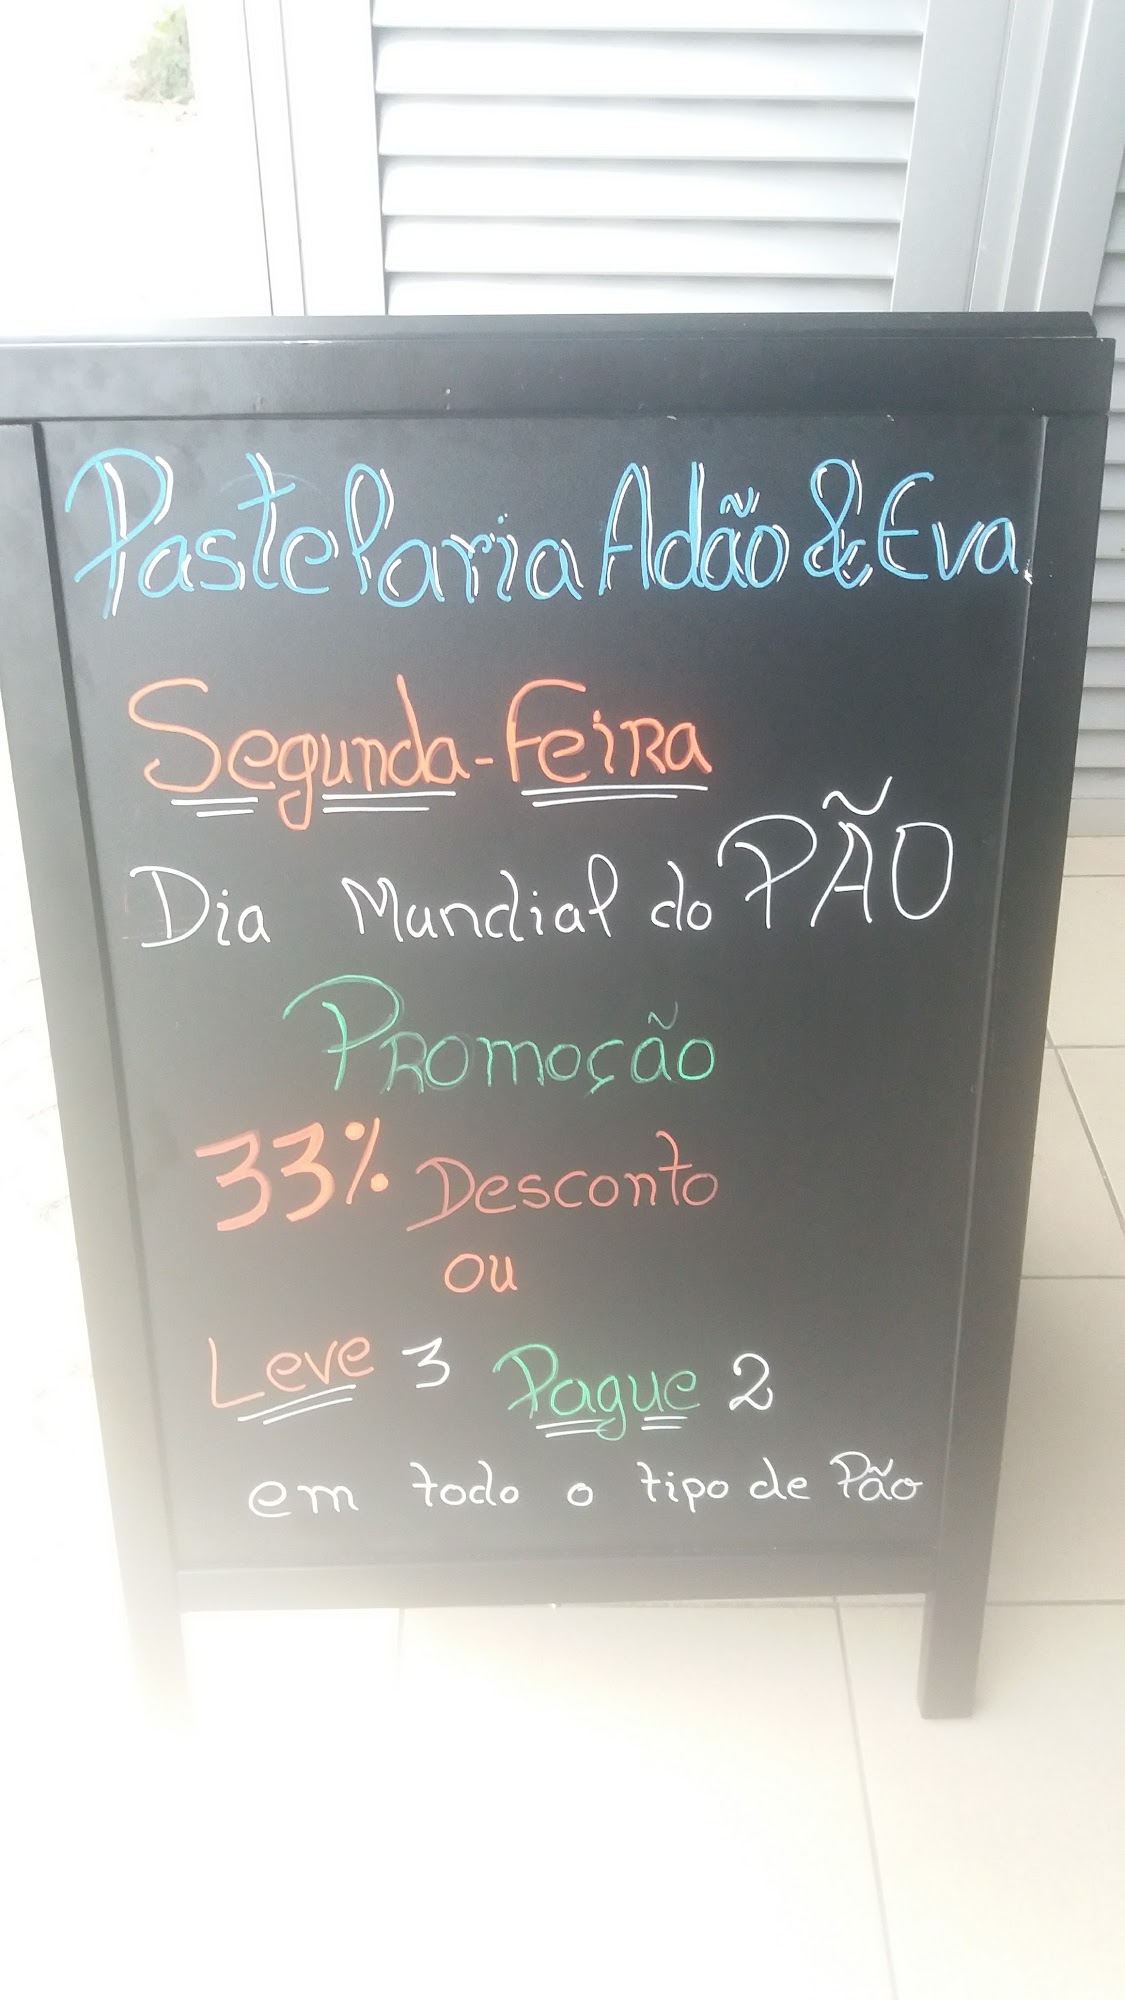 Pastelaria Adão & Eva
Segunda-Feira
Dia Mundial do PÃO
Promoção
33% Desconto
ou
Leve 3 Pague 2
em todo o tipo de Pão